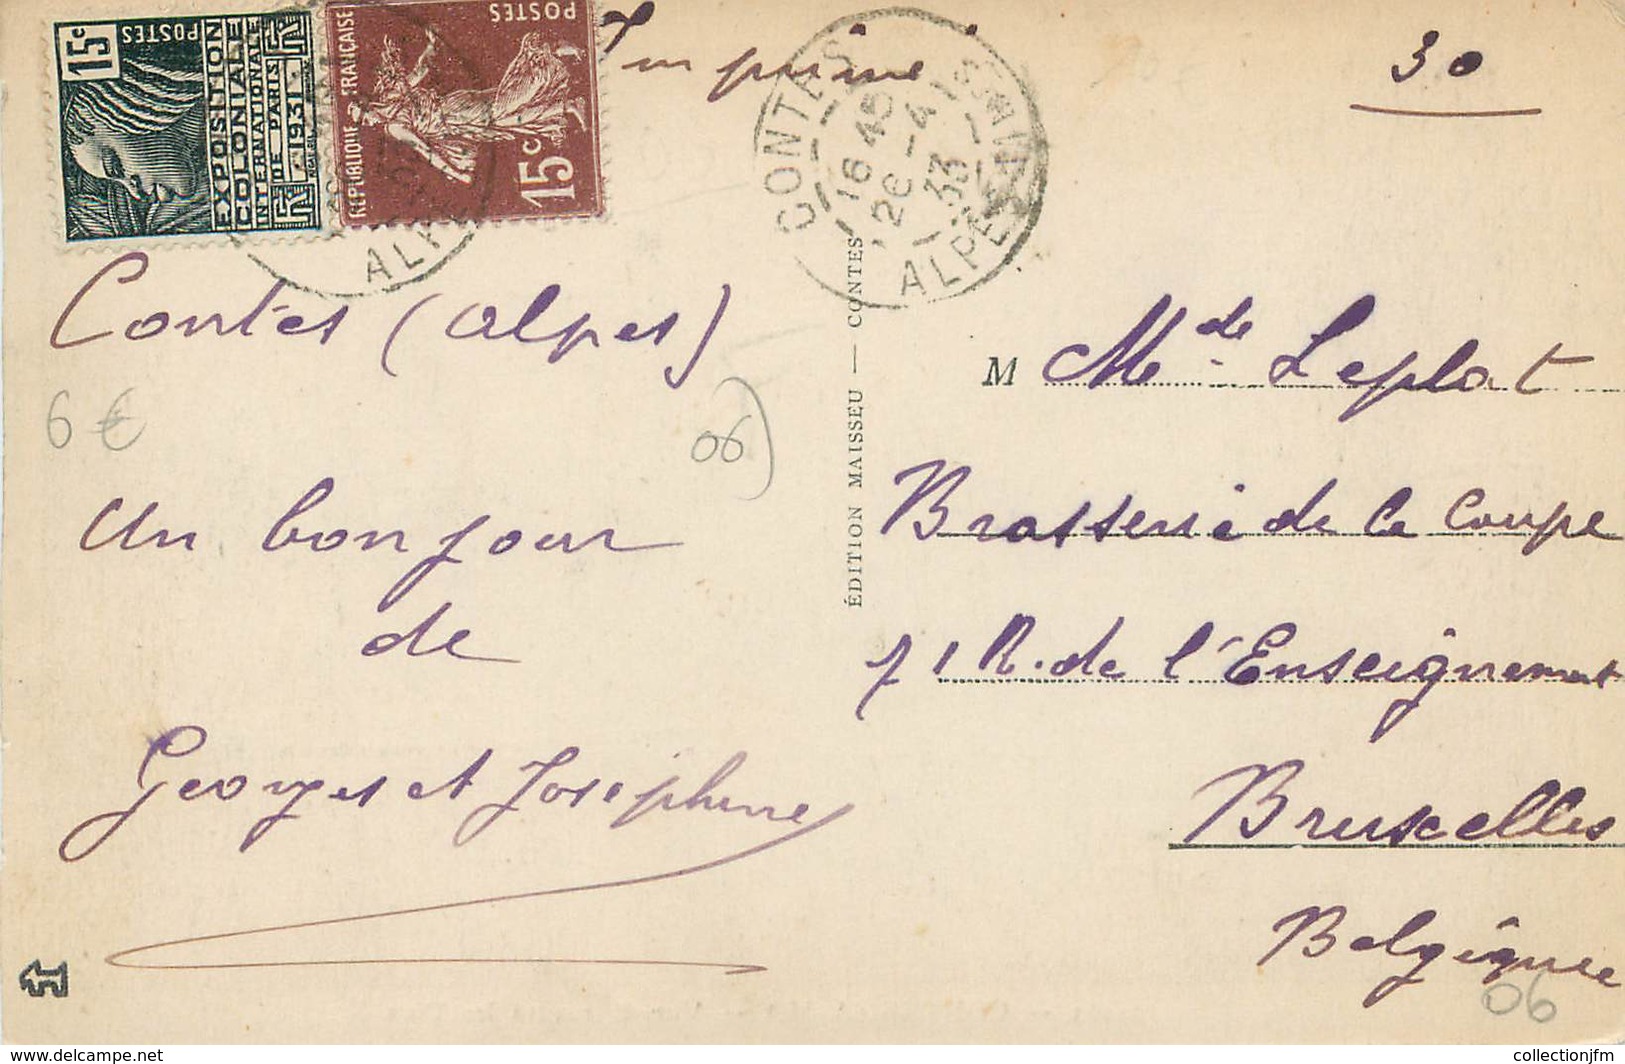 15c
POSTES
EXPOSITION
COLONIALE
INTERNATIONALE
DE PARIS
1931
REPUBLIQUE FRANÇAISE
POSTES
15c
ALPES
Imprimé
CONTES
16 45
26 - 4
33
ALPES MMES
30
Contes (Alpes)
6 €
06)
Un bonjour
de
Georges et Joséphine
ÉDITION MAISSEU — CONTES
M Mde Leplat
Brasserie de la Coupe
71 R. de l'Enseignement
Bruxelles
Belgique
06
www.delcampe.net
collectionjfm